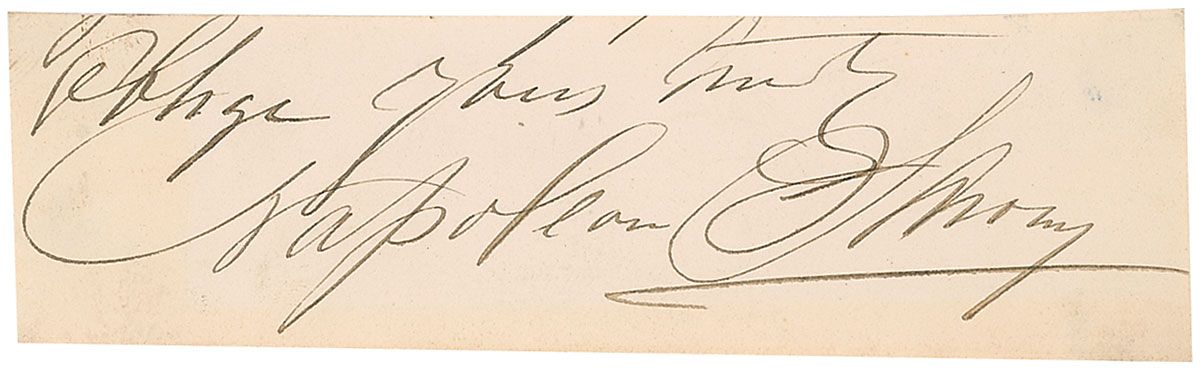 oblige yours truly
Napoleon Sarony